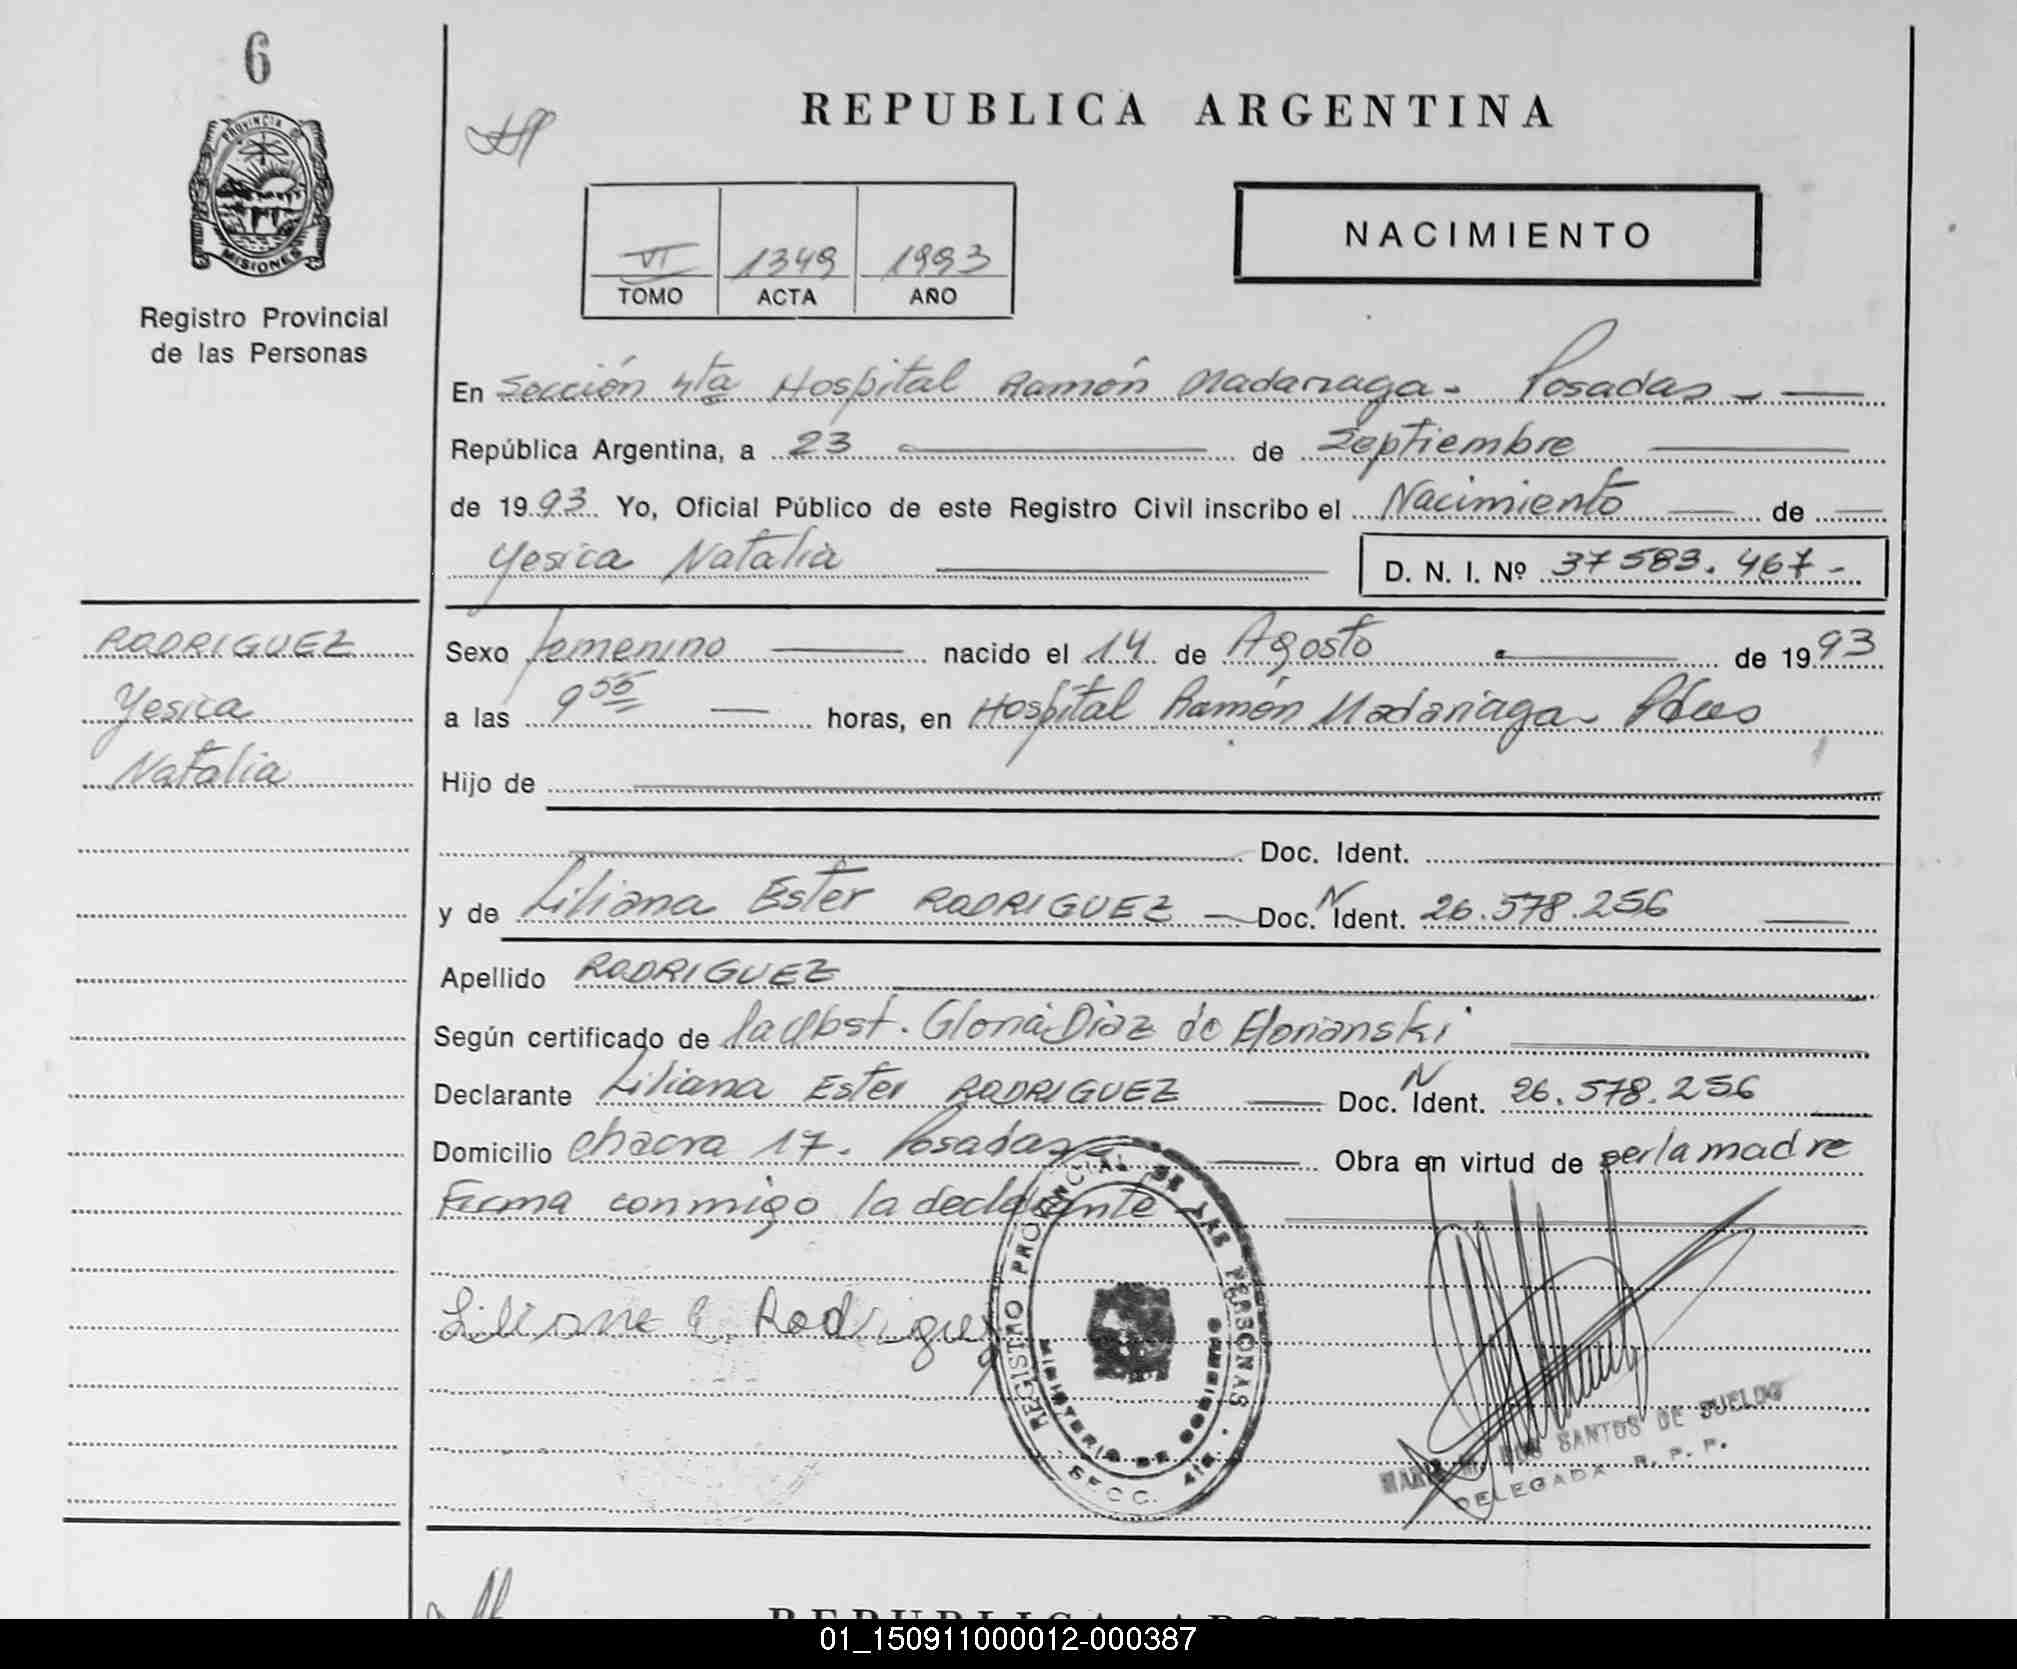 6
PROVINCIA DE
MISIONES
Registro Provincial
de las Personas
REPUBLICA ARGENTINA
VI 1349 1993
TOMO ACTA AÑO
NACIMIENTO
En Sección 4ta Hospital Ramón Madariaga - Posadas -
República Argentina, a 23 de Septiembre
de 1993 Yo, Oficial Público de este Registro Civil inscribo el Nacimiento de
Yesica Natalia D. N. I. Nº 37583.467-
RODRIGUEZ
Yesica
Natalia
Sexo femenino nacido el 14 de Agosto de 1993
a las 9 55 horas, en Hospital Ramón Madariaga - Pdas
Hijo de
Doc. Ident.
y de Liliana Ester RODRIGUEZ Doc. N Ident. 26.578.256
Apellido RODRIGUEZ
Según certificado de la Obst. Gloria Diaz de
Declarante Liliana Ester RODRIGUEZ Doc. N Ident. 26.578.256
Domicilio Chacra 17. Posadas Obra en virtud de ser la madre
Firma conmigo la declarante
Liliana E. Rodriguez
REGISTRO PROVINCIAL DE LAS PERSONAS
MINISTERIO DE GOBIERNO
SECC. 4ta.
DOS SANTOS DE SUELDO
DELEGADA R. P. P.
REPUBLICA ARGENTINA
01_150911000012-000387